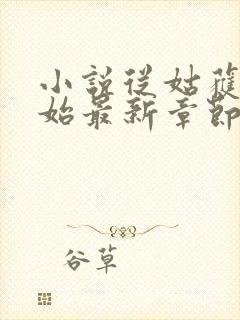 小說從姑獲
始最新章節
谷草